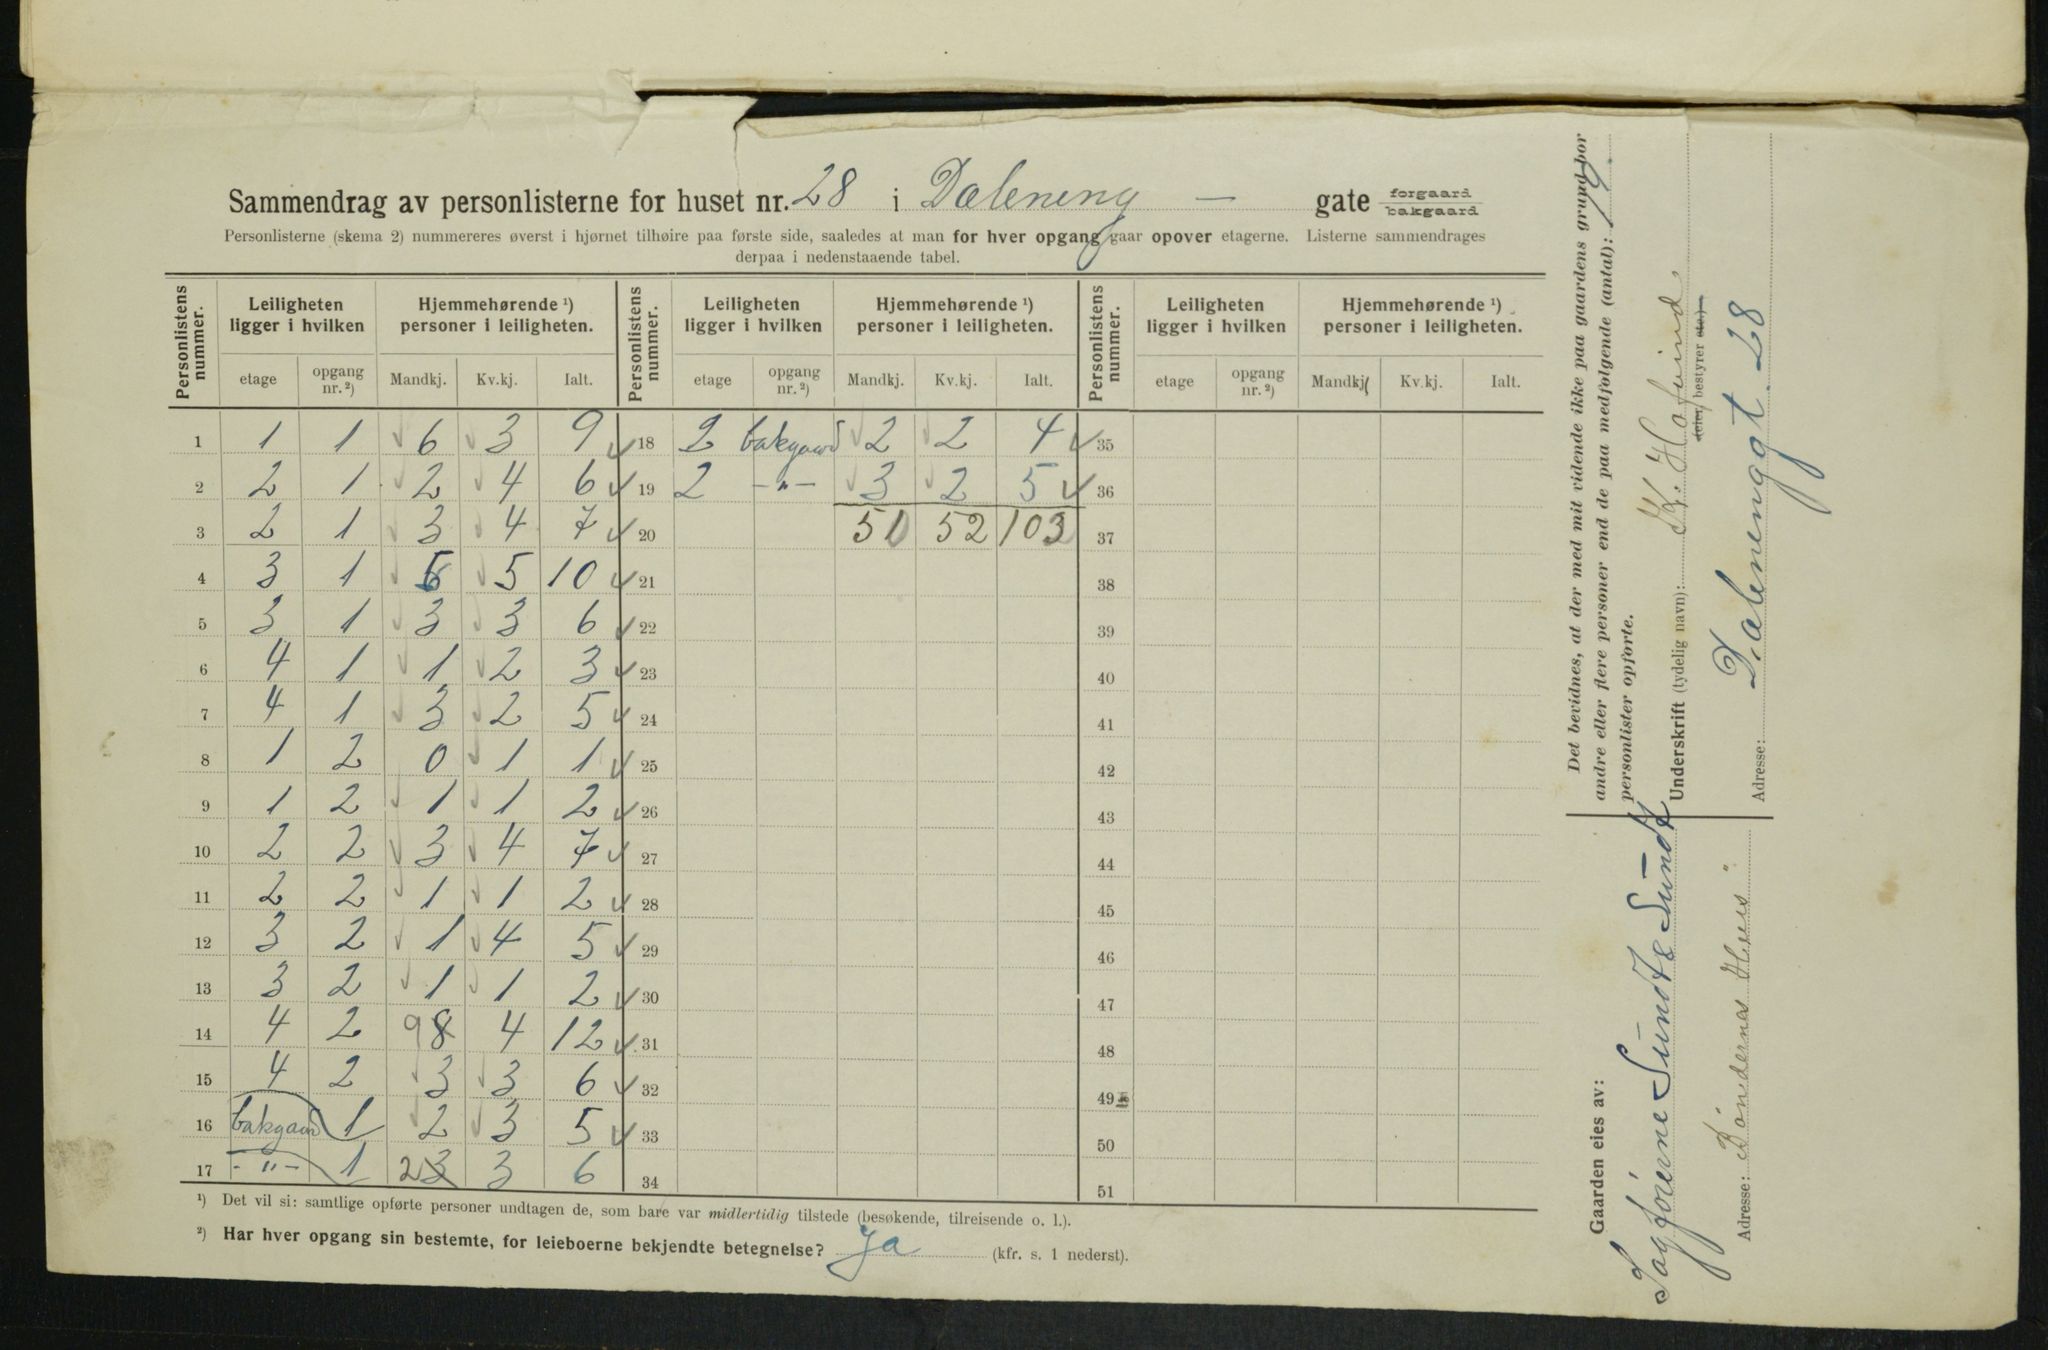 Sammendrag av personlisterne for huset nr. 28 i Dæleneng — gate forgaard bakgaard
Personlisterne (skema 2) nummereres øverst i hjørnet tilhøire paa første side, saaledes at man for hver opgang gaar opover etagerne. Listerne sammendrages
derpaa i nedenstaaende tabel.
Personlistens nummer. Leiligheten ligger i hvilken Hjemmehørende ¹) personer i leiligheten. Personlistens nummer. Leiligheten ligger i hvilken Hjemmehørende ¹) personer i leiligheten. Personlistens nummer. Leiligheten ligger i hvilken Hjemmehørende ¹) personer i leiligheten.
etage opgang nr. ²) Mandkj. Kv.kj. Ialt. etage opgang nr. ²) Mandkj. Kv.kj. Ialt. etage opgang nr. ²) Mandkj. Kv.kj. Ialt.
1 1 1 6 3 9 18 2 bakgaard 2 2 4 35
2 2 1 2 4 6 19 2 -"- 3 2 5 36
3 2 1 3 4 7 20 51 52 103 37
4 3 1 5 5 10 21 38
5 3 1 3 3 6 22 39
6 4 1 1 2 3 23 40
7 4 1 3 2 5 24 41
8 1 2 0 1 1 25 42
9 1 2 1 1 2 26 43
10 2 2 3 4 7 27 44
11 2 2 1 1 2 28 45
12 3 2 1 4 5 29 46
13 3 2 1 1 2 30 47
14 4 2 9 8 4 12 31 48
15 4 2 3 3 6 32 49
16 bakgaard 1 2 3 5 33 50
17 -"- 1 2 3 3 6 34 51
¹) Det vil si: samtlige opførte personer undtagen de, som bare var midlertidig tilstede (besøkende, tilreisende o. l.).
²) Har hver opgang sin bestemte, for leieboerne bekjendte betegnelse? Ja (kfr. s. 1 nederst).
Det bevidnes, at der med mit vidende ikke paa gaardens grund bor
andre eller flere personer end de paa medfølgende (antal): 19.
personlister opførte.
Underskrift (tydelig navn): K. Hofind
(eier, bestyrer etc.)
Adresse: Dælenenggt. 28
Gaarden eies av:
Sagførerne Sundt & Sundt
Adresse: Bøndernes Hus"